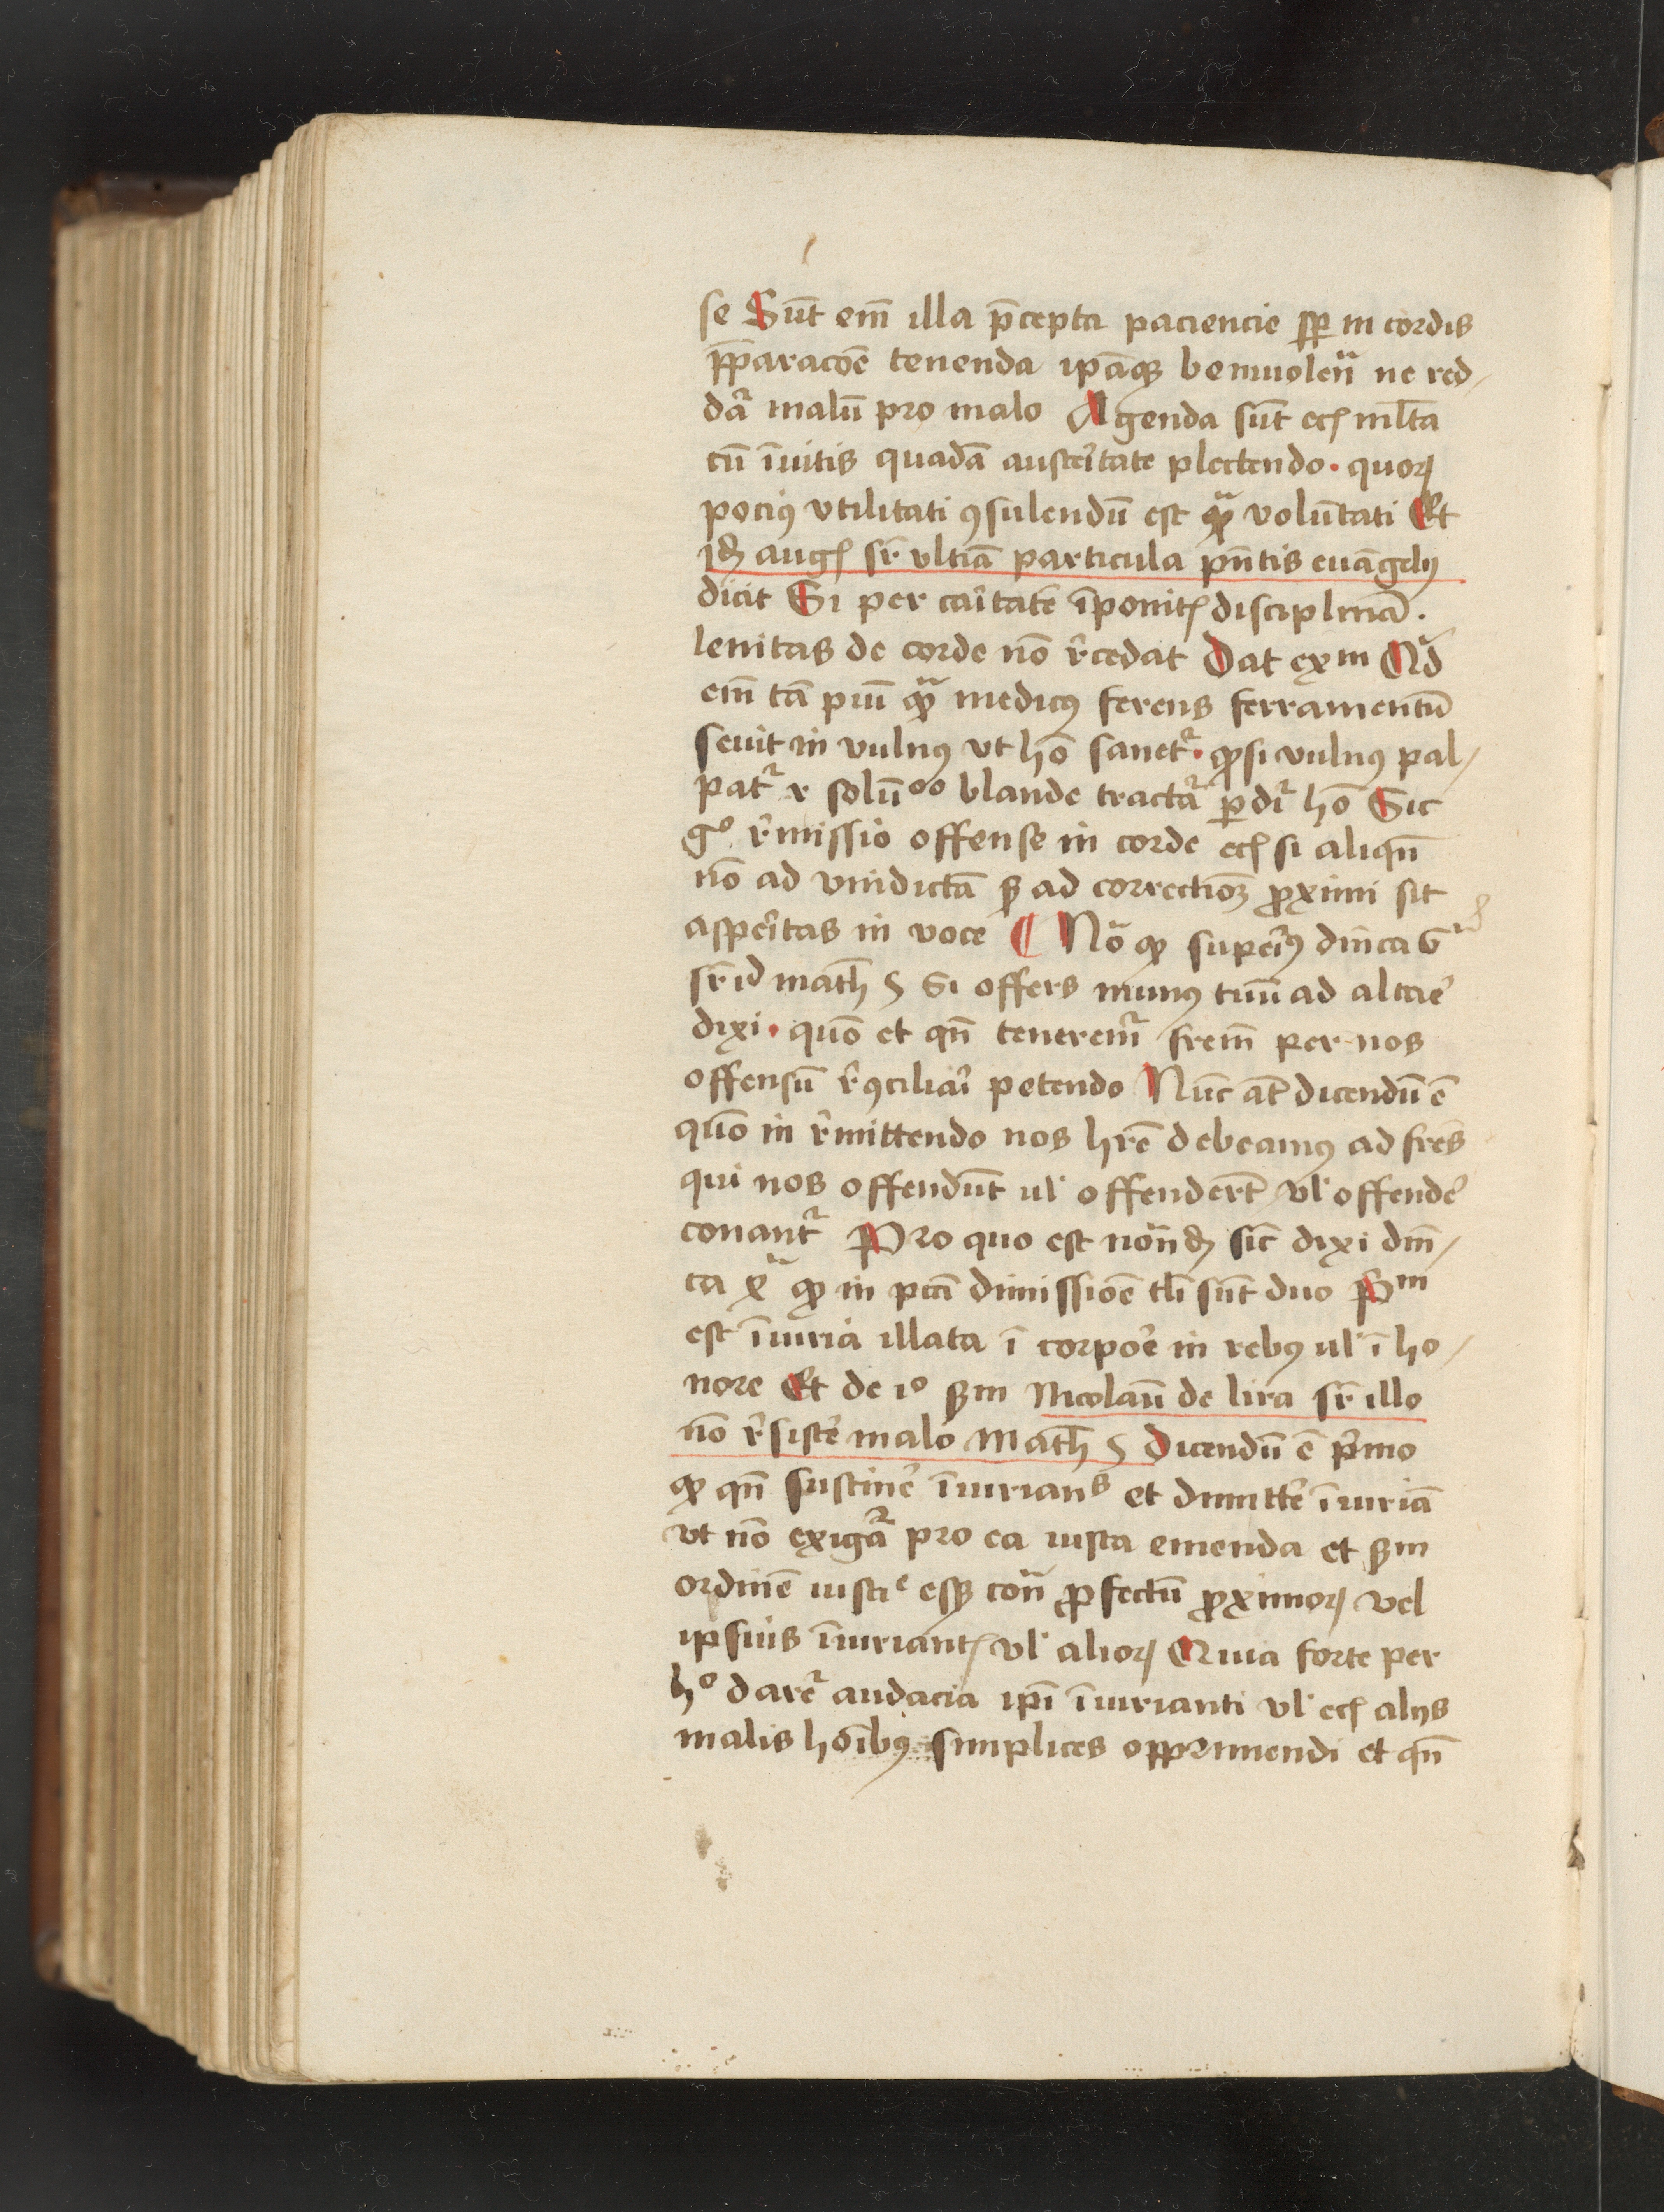 se Sūt em̄ illa p̄cepta paciencie sp̄ in cordis
p̄paracōe tenenda ip̄aqꝫ beniuolen̄ ne red-
dat᷑ malū pro malo Agenda sūt ecꝭ ml̄ta
cū īuitis quadā austeritate plectendo · quoꝝ
pociꝰ vtilitati ꝯsulendū est qͣꝫ volūtati Et
idꝫ augꝭ sr̄ vltiā particula pn̄tis euāgelij
dicit Si per caritatē īponitꝭ disciplinā ·
lenitas de corde nō r̄cedat Dat exm Qͥd
em̄ tā piū qͣꝫ medicꝰ ferens ferramentū
seuit in vulnꝰ vt hō sanet᷑ · qꝫ si vulnꝰ pal-
pat᷑ ⁊ solūᵒᵒ blande tractat᷑ ꝑdit᷑ hō Sic
gͦ r̄missio offense in corde ecꝭ si aliqn̄
nō ad vindictā sꝫ ad correctiōꝫ ꝓximi sit
asperitas in voce ¶ Nō qꝫ superiꝰ dīnca G
sr̄ id math̄ 5 Si offers munꝰ tuū ad altare
dixi · quō et qn̄ tenerem᷑ frem̄ per nos
offensū r̄ꝯciliari petendo Nūc at̄ dicendū ē
quō in r̄mittendo nos hr̄e debeamꝰ ad fres̄
qui nos offendūt ul̓ offenderūt vl̓ offende᷑
conant᷑ Pro quo est notandꝫ sic̄ dixi dīn-
ca x̄ qꝫ in pctī dimissiōe tlī sūt duo Pᵐ
est īiuria illata ī corpore in rebꝰ ul̓ ī ho-
nore Et de 1ͦ sꝫm Nicolaū de lira sr̄ illo
nō r̄sistere malo Math̄ 5 Dicendū ē p̄mo
qꝫ qn̄ sustinere īiurianˢ et dimittere īiuriā
vt nō exigat᷑ pro ea iusta emenda et sꝫm
ordinē iusticͤ essꝫ con̄ ꝓfectū ꝓximoꝝ vel
ipsius īiuriantꝭ vl̓ alioꝝ Quia forte per
hͦ daret᷑ audacia ip̄i īiurianti vl̓ ecꝭ alijs
malis hoībꝰ simplices opprimendi et qn̄